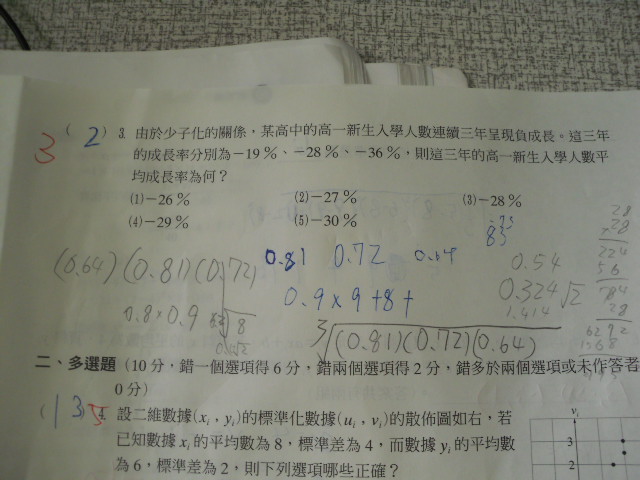 3 ( 2 ) 3. 由於少子化的關係，某高中的高一新生入學人數連續三年呈現負成長。這三年
的成長率分別為－19％、－28％、－36％，則這三年的高一新生入學人數平
均成長率為何？
(1)－26％ (2)－27％ (3)－28％
(4)－29％ (5)－30％
83
28
28
224
56
784
28
(0.64)(0.81)(0.72)
0.81 0.72
0.54
0.8×0.9
0.9×9+8+
0.324√2
1.414
6292
3√(0.81)(0.72)(0.64)
二、多選題（10分，錯一個選項得6分，錯兩個選項得2分，錯多於兩個選項或未作答者
0分）
( 1 3 ) 5 4. 設二維數據(xᵢ，yᵢ)的標準化數據(uᵢ，vᵢ)的散佈圖如右，若
已知數據xᵢ的平均數為8，標準差為4，而數據yᵢ的平均數
為6，標準差為2，則下列選項哪些正確？
vᵢ
3
2